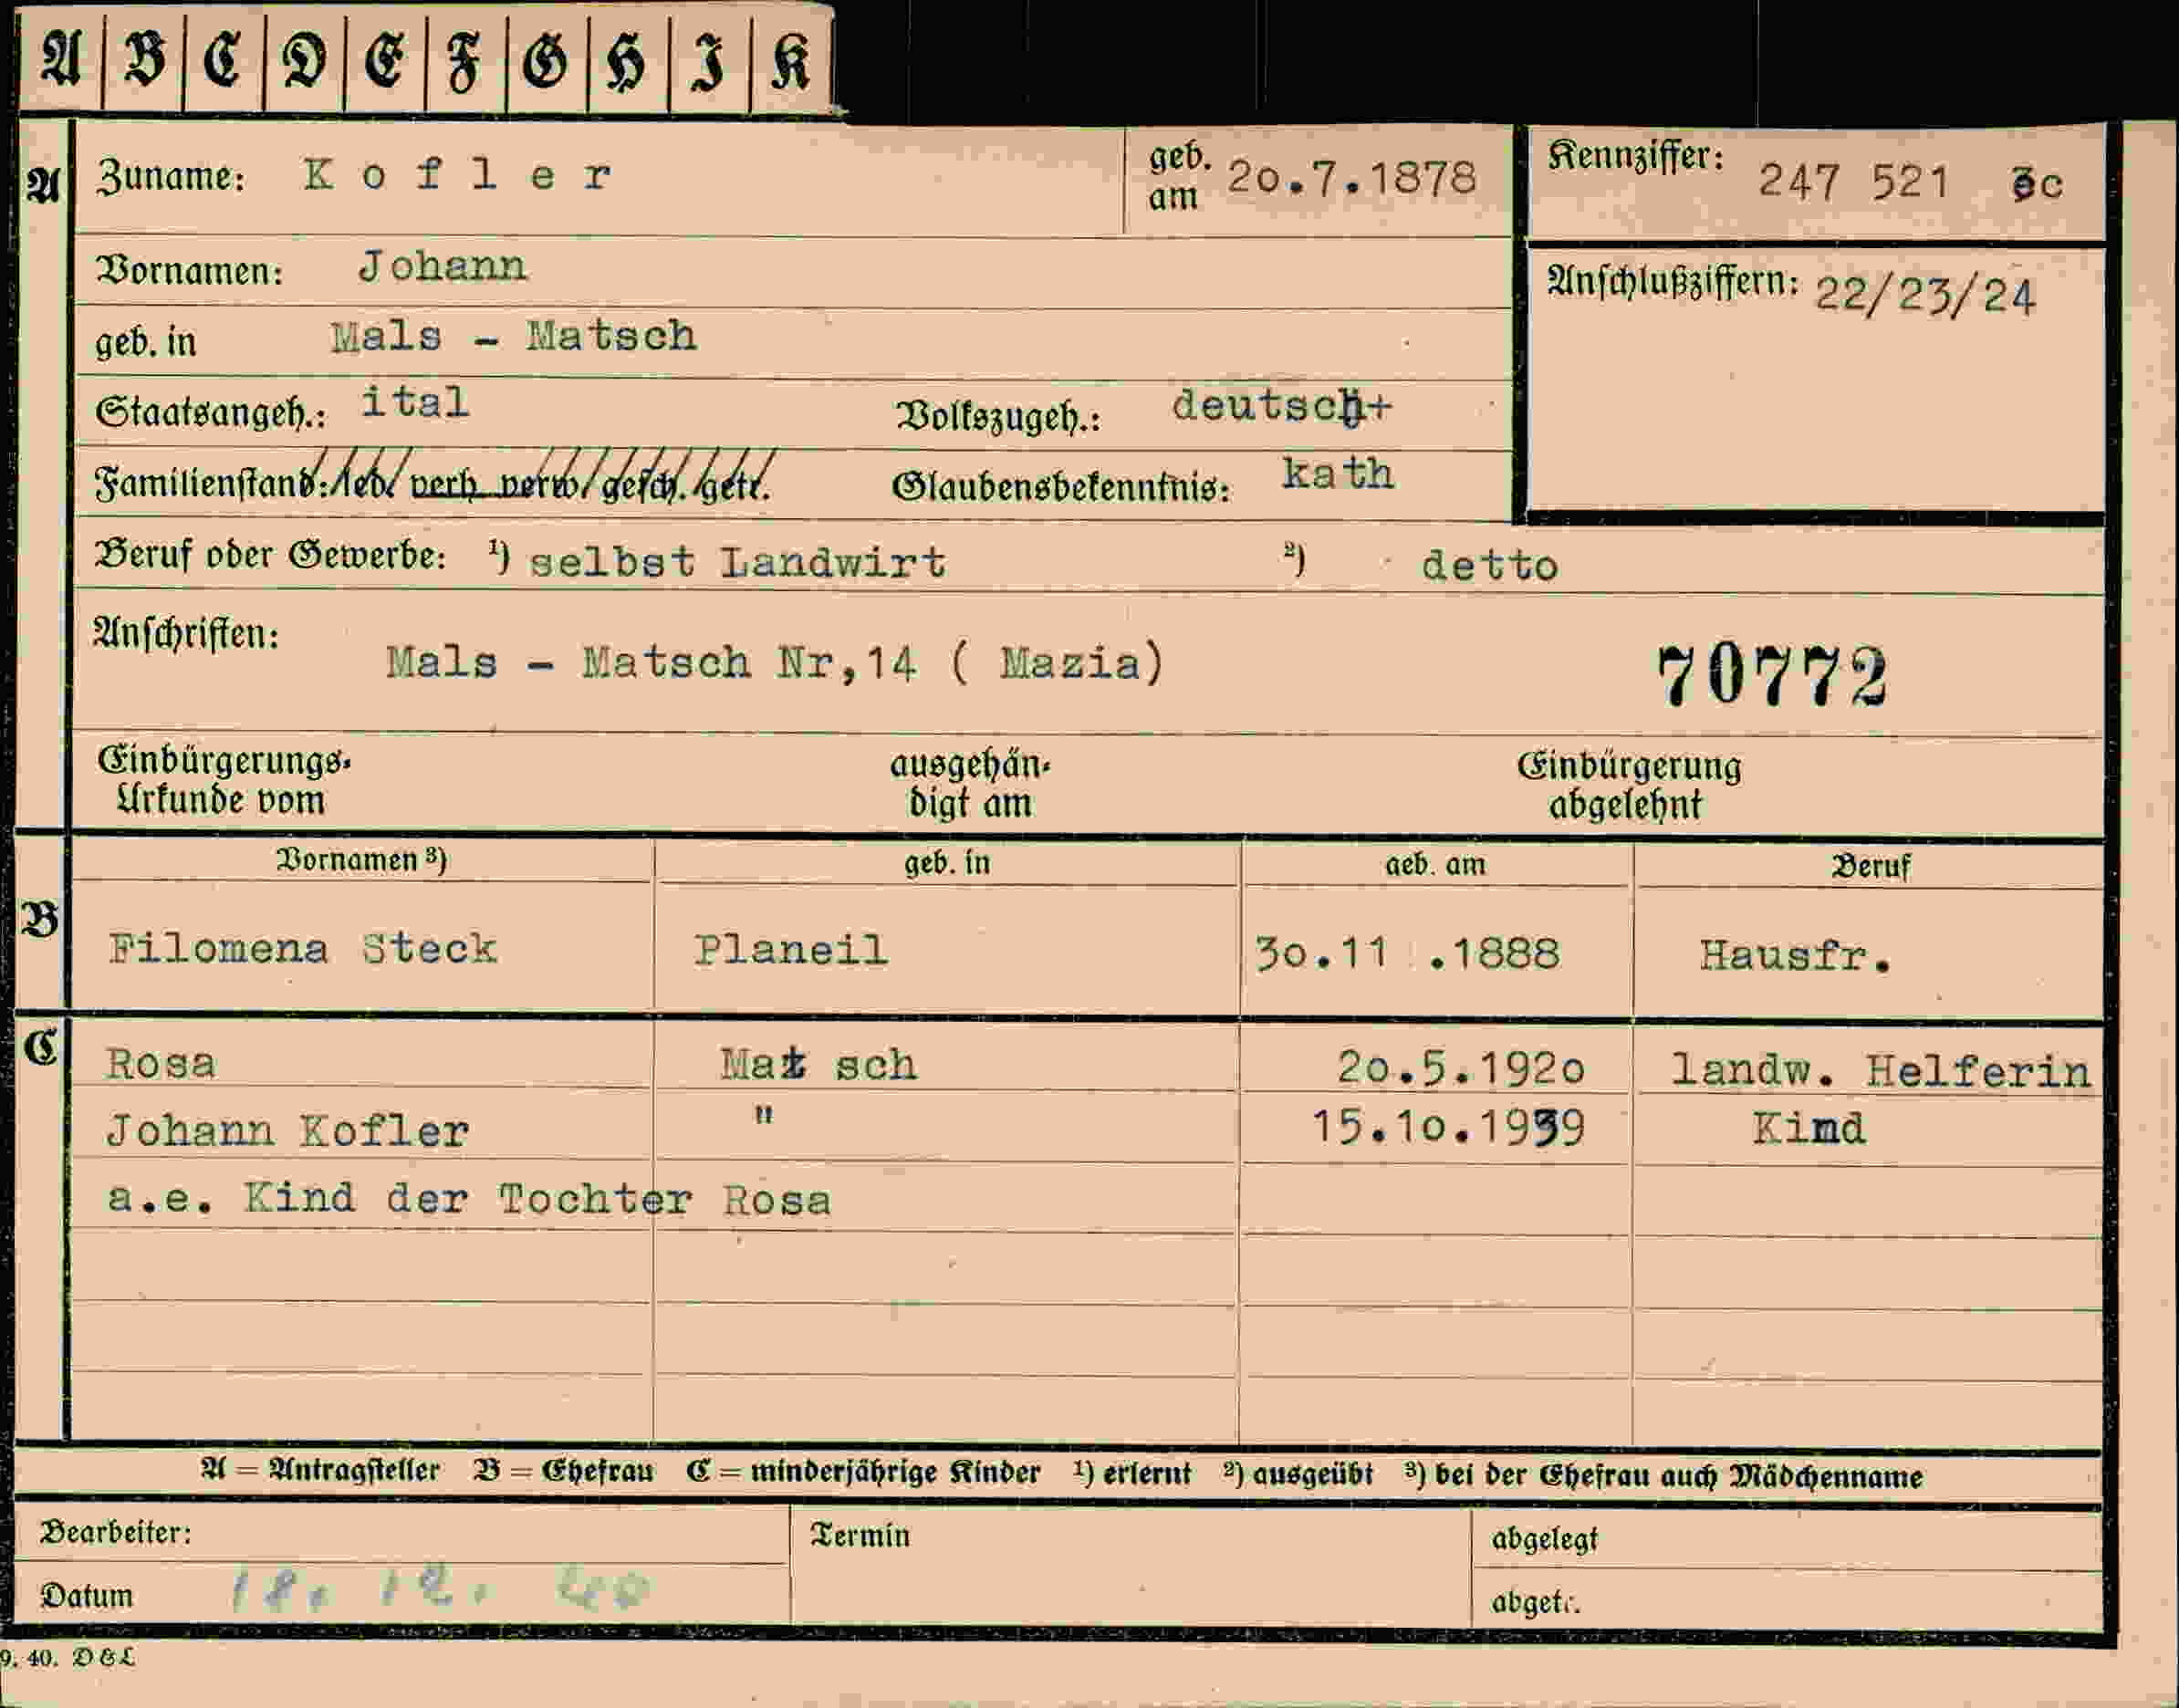 A B C D E F G H I K
A Zuname: Kofler geb. am 20.7.1878 Kennziffer: 247 521 3c
Vornamen: Johann Anschlußziffern: 22/23/24
geb. in Mals - Matsch
Staatsangeh.: ital Volkszugeh.: deutsch+
Familienstand: led/ verh verw/ gesch. /getr. Glaubensbekenntnis: kath
Beruf oder Gewerbe: ¹) selbst Landwirt ²) detto
Anschriften: Mals - Matsch Nr,14 ( Mazia) 70772
Einbürgerungs- ausgehän- Einbürgerung
Urkunde vom digt am abgelehnt
Vornamen ³) geb. in geb. am Beruf
B Filomena Steck Planeil 30.11 .1888 Hausfr.
C Rosa Mat sch 20.5.1920 landw. Helferin
Johann Kofler " 15.10.1939 Kind
a.e. Kind der Tochter Rosa
A = Antragsteller B = Ehefrau C = minderjährige Kinder ¹) erlernt ²) ausgeübt ³) bei der Ehefrau auch Mädchenname
Bearbeiter: Termin abgelegt
Datum 18. 12. 40 abgetr.
9. 40. D & L